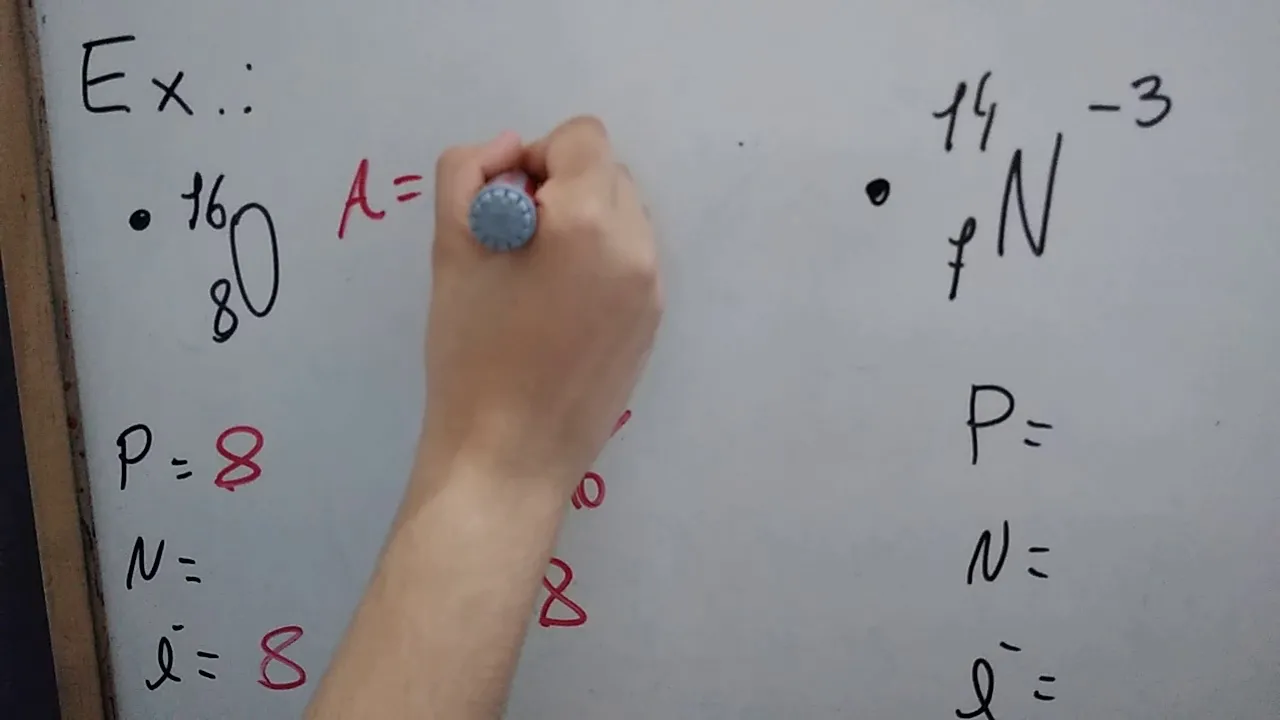 Ex.:
• 16 8 O A =
P = 8
N =
e- = 8
8
• 14 7 N -3
P =
N =
e- =